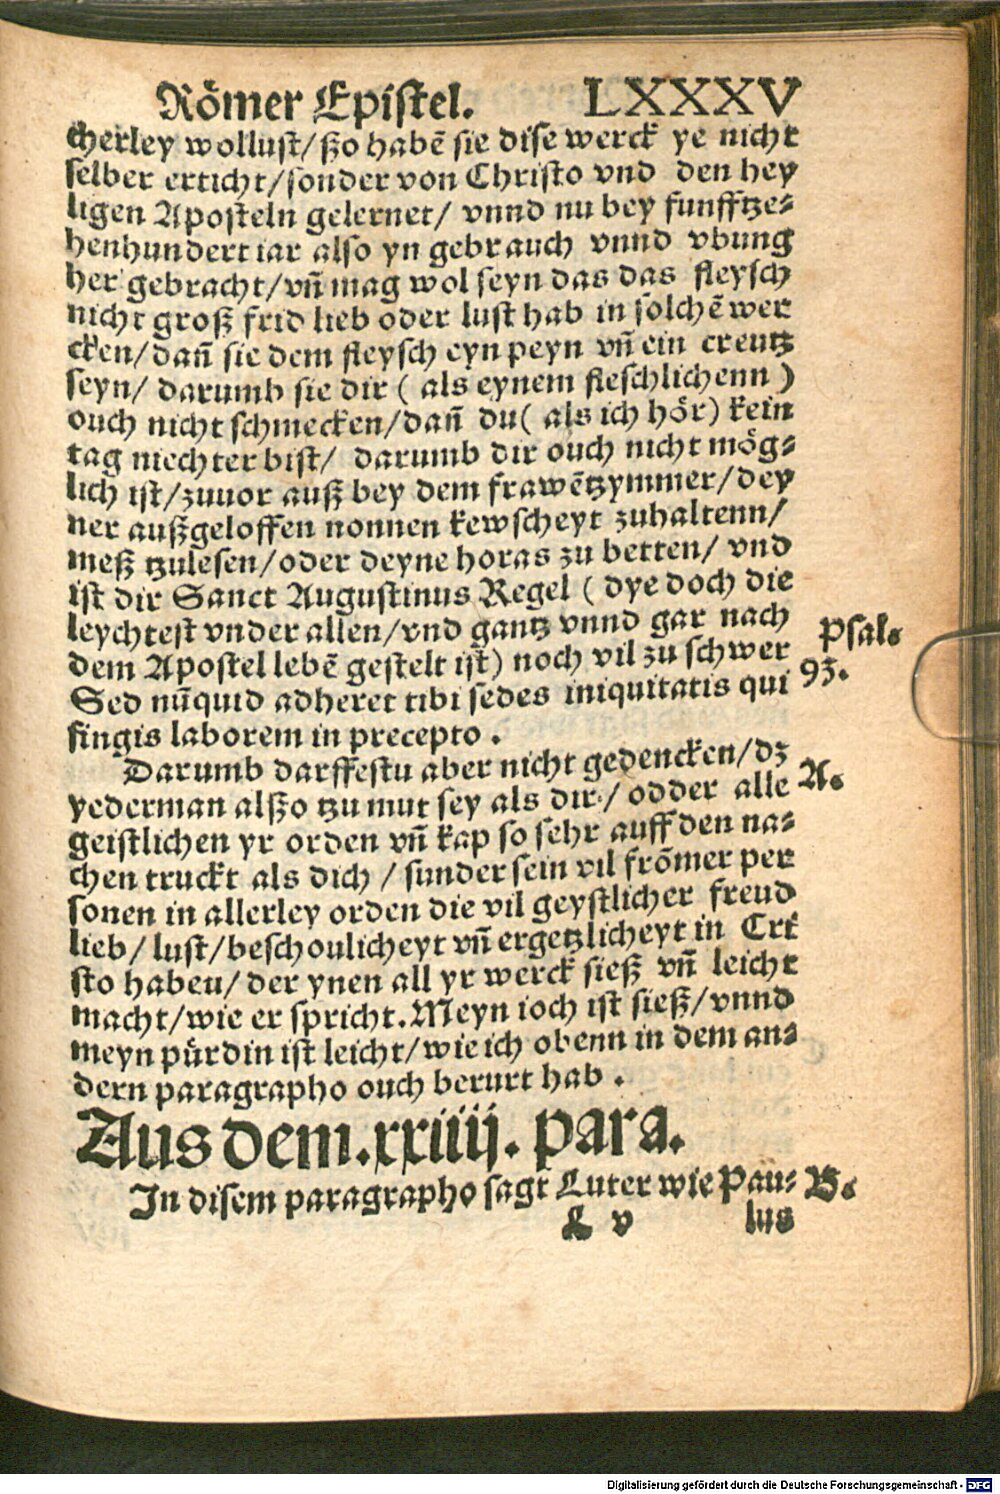 Römer Epistel. LXXXV
cherley wollust/ ßo habē sie dise werck ye nicht
selber erticht/ sonder von Christo vnd den hey
ligen Aposteln gelernet/ vnnd nu bey funfftze-
henhundert iar also yn gebrauch vnnd vbung
her gebracht/ vñ mag wol seyn das das fleysch
nicht groß frid lieb oder lust hab in solchē wer
cken/ dañ sie dem fleysch eyn peyn vñ ein creutz
seyn/ darumb sie dir ( als eynem fleschlichenn )
ouch nicht schmecken/ dañ du ( als ich hör) kein
tag niechter bist/ darumb dir ouch nicht mög-
lich ist/ zuuor auß bey dem frawēzymmer/ dey
ner außgeloffen nonnen kewscheyt zuhaltenn/
meß tzulesen/ oder deyne horas zu betten/ vnd
ist dir Sanct Augustinus Regel ( dye doch die
leychtest vnder allen/ vnd gantz vnnd gar nach
dem Apostel lebē gestelt ist) noch vil zu schwer
Psal.
93.
Sed nūquid adheret tibi sedes iniquitatis qui
fingis laborem in precepto .
Darumb darffestu aber nicht gedencken/ dz
A.
yederman alßo tzu mut sey als dir/ odder alle
geistlichen yr orden vñ kap so sehr auff den na-
chen truckt als dich / sunder sein vil frömer per
sonen in allerley orden die vil geystlicher freud
lieb/ lust/ beschoulicheyt vñ ergetzlicheyt in Cri
sto haben/ der ynen all yr werck sieß vñ leicht
macht/ wie er spricht. Meyn ioch ist sieß/ vnnd
meyn pürdin ist leicht/ wie ich obenn in dem an-
dern paragrapho ouch berurt hab .
Aus dem .xxiiij. para.
In disem paragrapho sagt Luter wie Pau- B.
L v lus
Digitalisierung gefördert durch die Deutsche Forschungsgemeinschaft - DFG